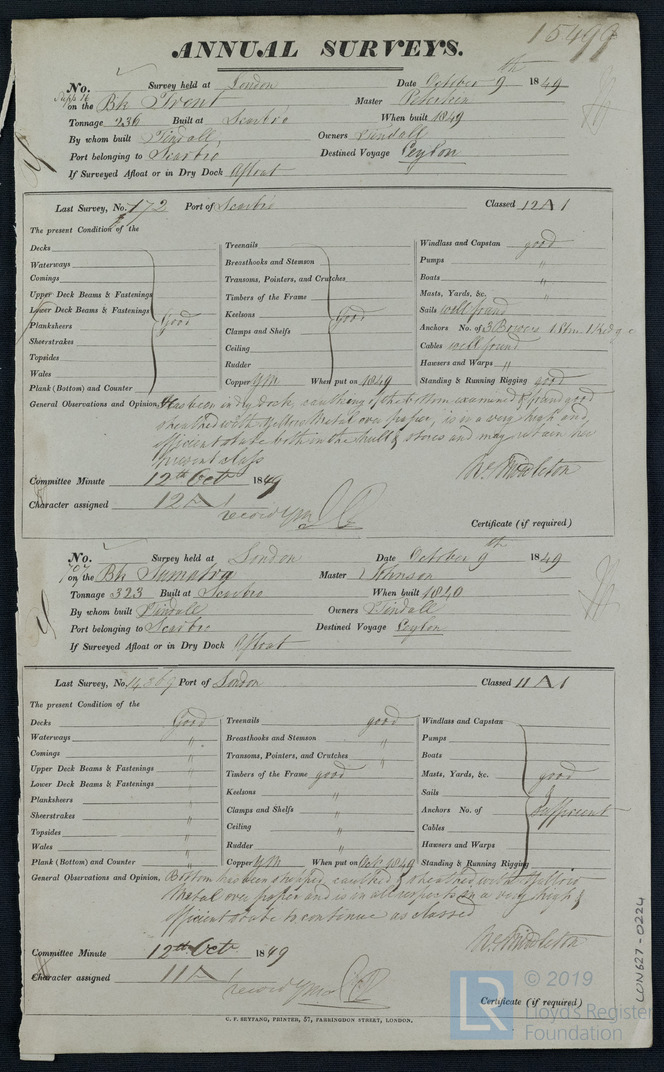 15499
ANNUAL SURVEYS.
No. Survey held at London Date October 9th 1849
on the Bk Trent Master
Tonnage 236 Built at Scarbro When built 1849
By whom built Tindall, Owners Tindall
Port belonging to Scarbro Destined Voyage Ceylon
If Surveyed Afloat or in Dry Dock Afloat
Last Survey, No. 172 Port of Scarbro Classed 12 A 1
The present Condition of the
Decks
Waterways
Comings
Upper Deck Beams & Fastenings
Lower Deck Beams & Fastenings
Planksheers Good
Sheerstrakes
Topsides
Wales
Plank (Bottom) and Counter
Treenails
Breasthooks and Stemson
Transoms, Pointers, and Crutches
Timbers of the Frame
Keelsons Good
Clamps and Shelfs
Ceiling
Rudder
Copper YM When put on 1849
Windlass and Capstan good
Pumps "
Boats "
Masts, Yards, &c. "
Sails well found
Anchors No. of 3 Bowers 1 Stm 1 Kedge
Cables well found
Hawsers and Warps "
Standing & Running Rigging good
General Observations and Opinion, Has been in dry dock, caulking of the bottom examined & found good
sheathed with Yellow Metal over paper, is in a very high and
efficient state both in the hull & stores and may retain her
present class
Wm Middleton
Committee Minute 12th Oct 1849
Character assigned 12 A 1
record YM
Certificate (if required)
No. 707 Survey held at London Date October 9th 1849
on the Bk Sumatra Master Johnson
Tonnage 323 Built at Scarbro When built 1840
By whom built Tindall Owners Tindall
Port belonging to Scarbro Destined Voyage Ceylon
If Surveyed Afloat or in Dry Dock Afloat
Last Survey, No. 14369 Port of London Classed 11 A 1
The present Condition of the
Decks Good
Waterways "
Comings "
Upper Deck Beams & Fastenings "
Lower Deck Beams & Fastenings "
Planksheers "
Sheerstrakes "
Topsides "
Wales "
Plank (Bottom) and Counter "
Treenails good
Breasthooks and Stemson "
Transoms, Pointers, and Crutches "
Timbers of the Frame good
Keelsons "
Clamps and Shelfs "
Ceiling "
Rudder "
Copper YM When put on Oct 1849
Windlass and Capstan
Pumps
Boats
Masts, Yards, &c. good
Sails &
Anchors No. of Sufficient
Cables
Hawsers and Warps
Standing & Running Rigging
General Observations and Opinion, Bottom has been stripped, caulked & sheathed with Yellow
Metal over paper and is in all respects in a very high &
efficient state to continue as classed
Wm Middleton
Committee Minute 12th Oct 1849
Character assigned 11 A 1
record YM
Certificate (if required)
C. F. SEYFANG, PRINTER, 57, FARRINGDON STREET, LONDON.
LON627-0224
LR © 2019
Lloyd's Register
Foundation